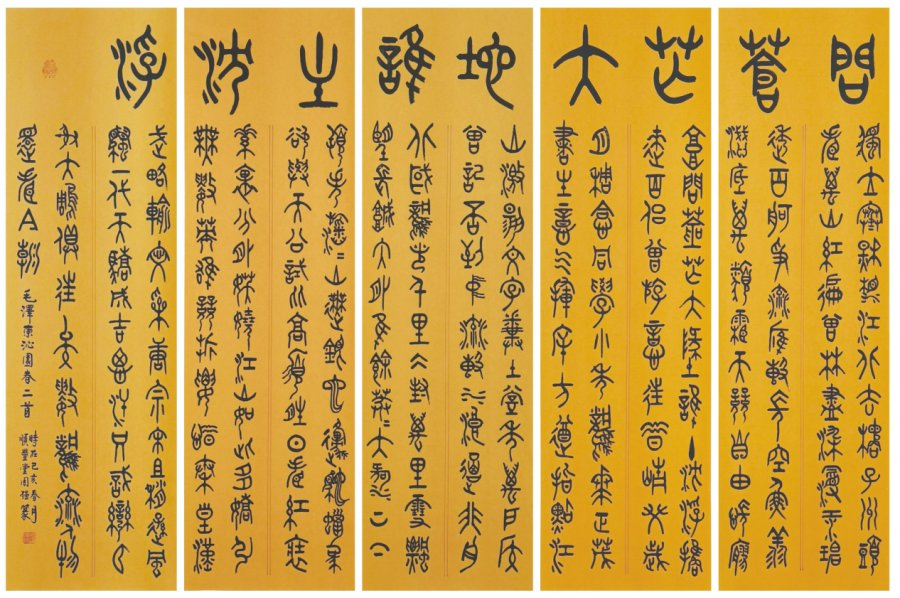 問蒼芒大地誰主沈浮
獨立寒秌湘江北去橘子州頭
看萬山紅徧曾林盡染漫江碧
透百舸爭流鷹擊長空魚翔
淺底萬類霜天競自由悵廖
廓問蒼芒大地誰主沈浮攜
來百侶曾游意往昔崢嶸歲
月稠恰同學少年風華正茂
書生意氣揮斥方遒指點江
山激揚文字糞土當年萬戶侯
曾記否到中流擊水浪遏飛舟
北國風光千里冰封萬里雪飄
望長城內外惟餘莽莽大河上下
頓失滔滔山舞銀蛇原馳蠟象
欲與天公試比高須晴日看紅裝
素裹分外妖嬈江山如此多嬌引
無數英雄競折腰惜秦皇漢
武略輸文采唐宗宋祖稍遜風
騷一代天驕成吉思汗只識彎弓
射大鵰俱往矣數風流人物
還看今朝
毛澤東沁園春二首
時在己亥春月